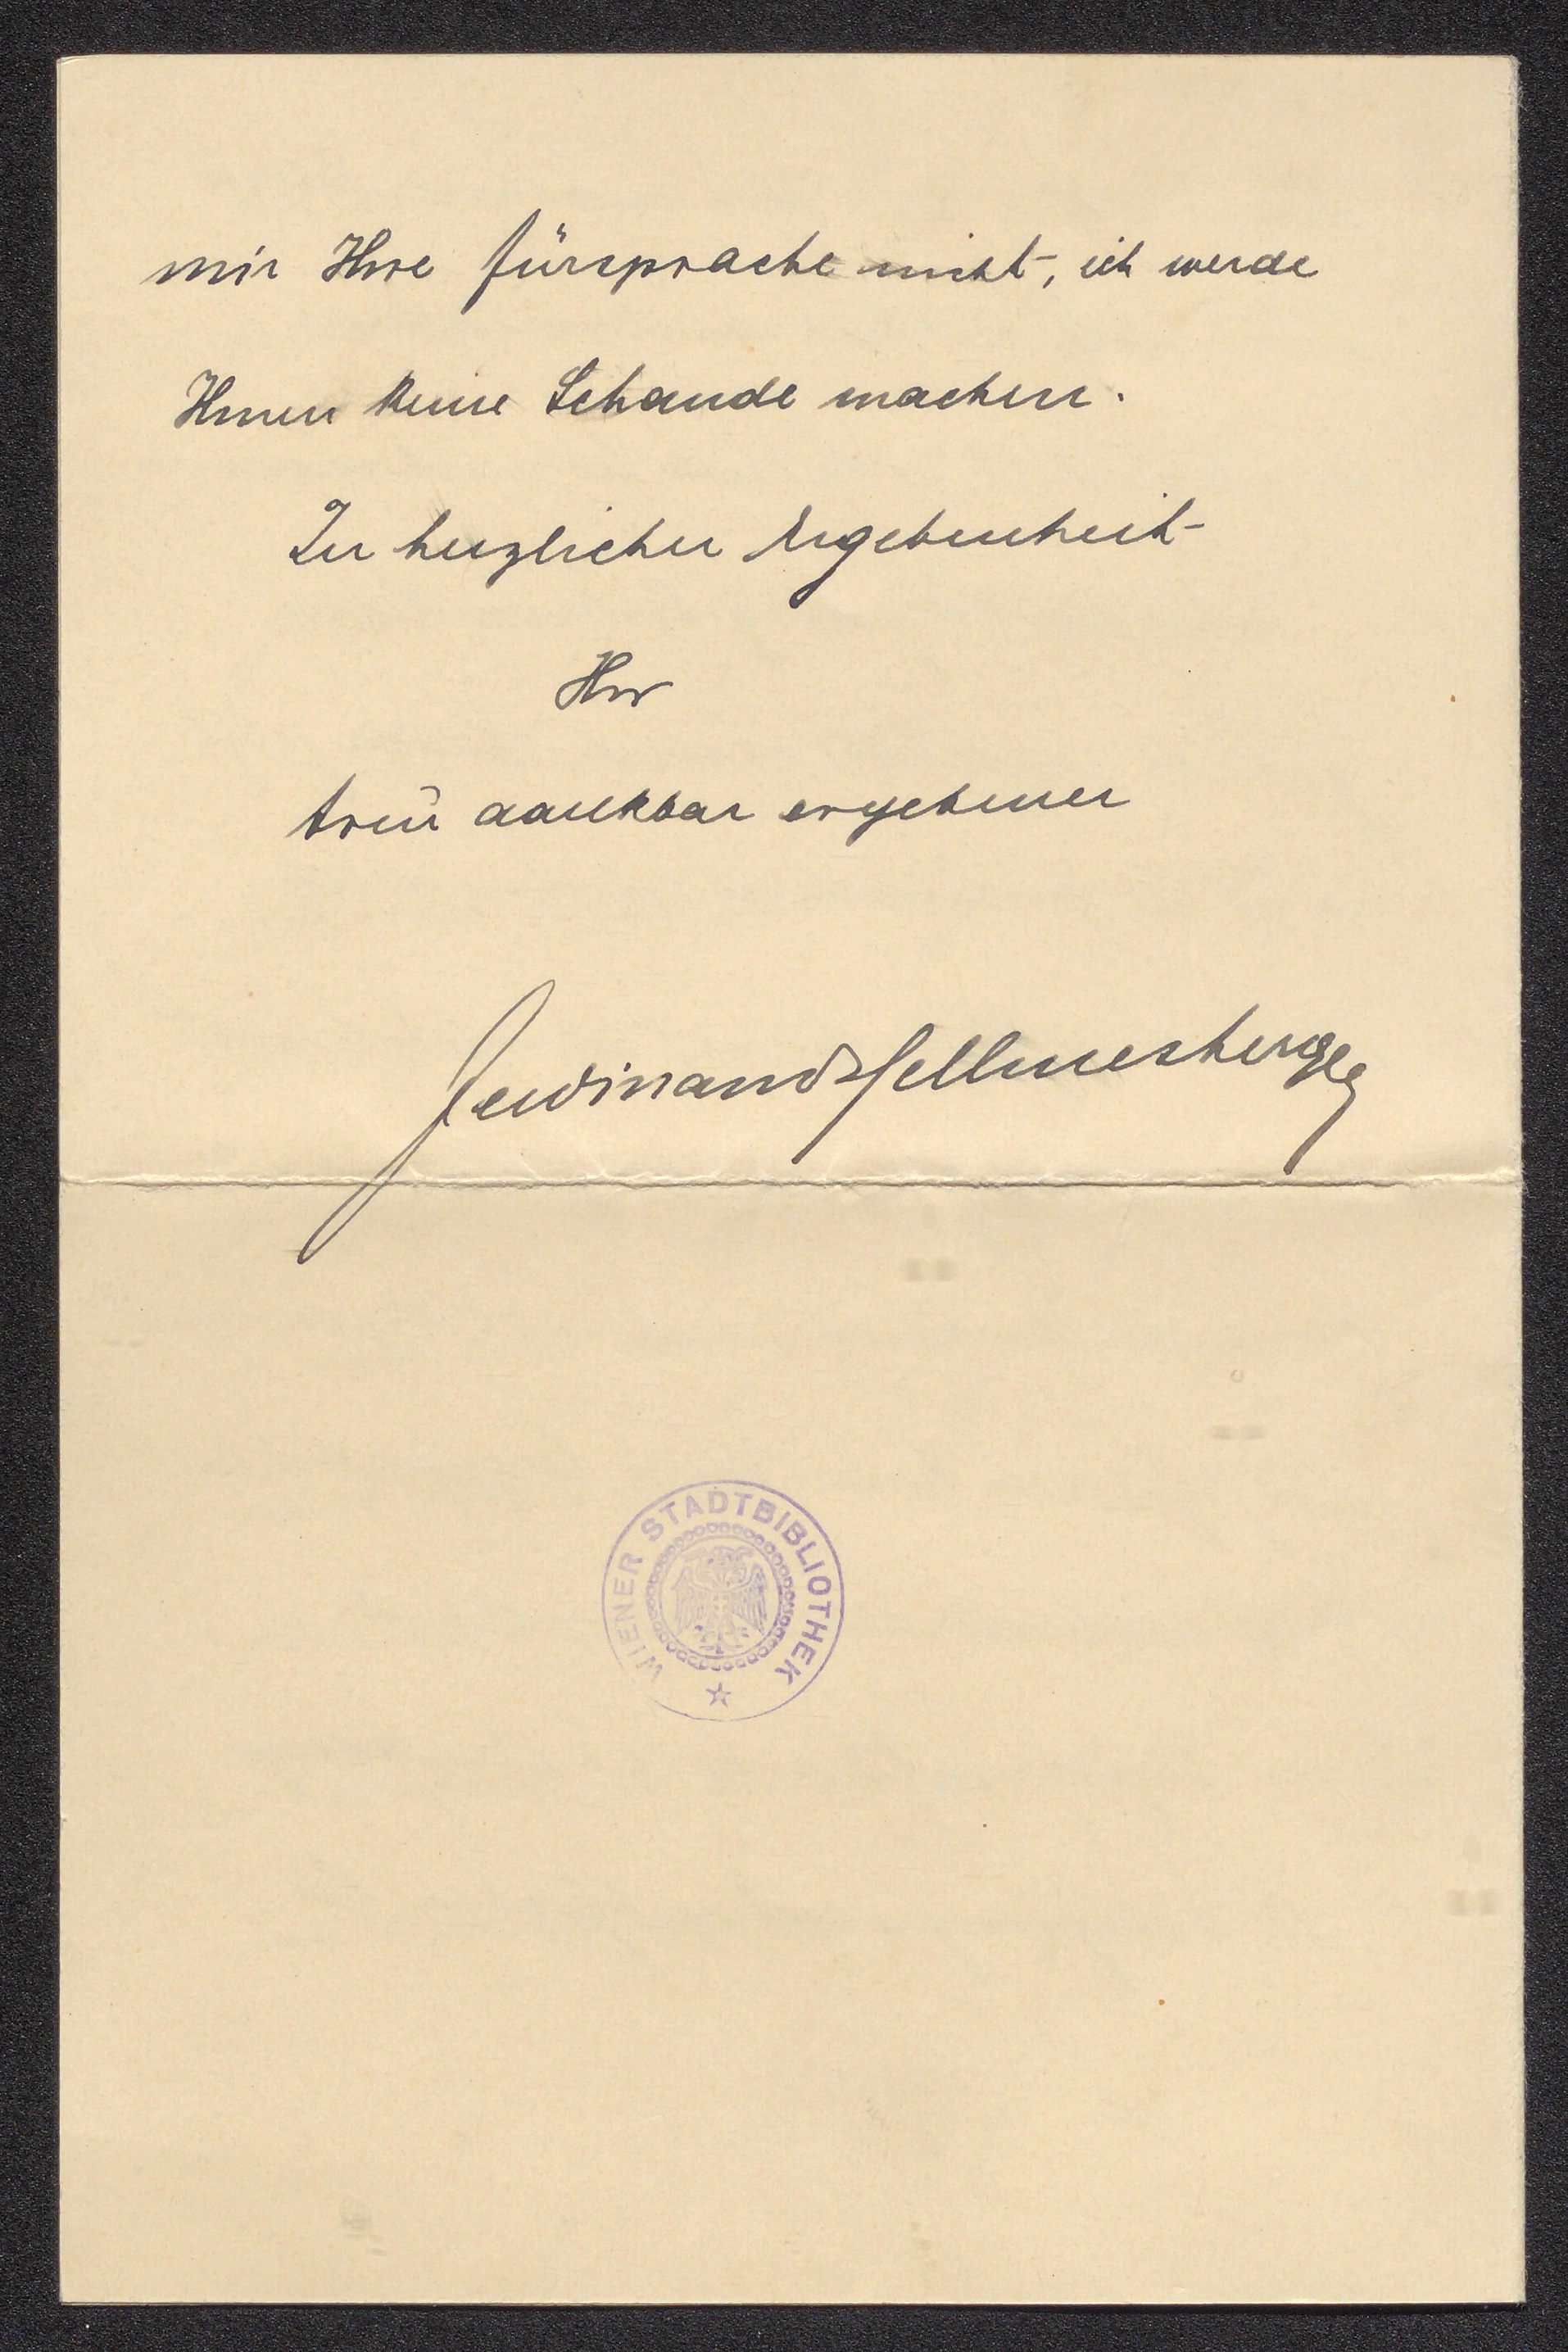 mir Ihre Fürsprache nicht, ich werde
Ihnen keine Schande machen.
In herzlicher Ergebenheit
Ihr
treu dankbar ergebener
Ferdinand Hellmesberger
WIENER STADTBIBLIOTHEK